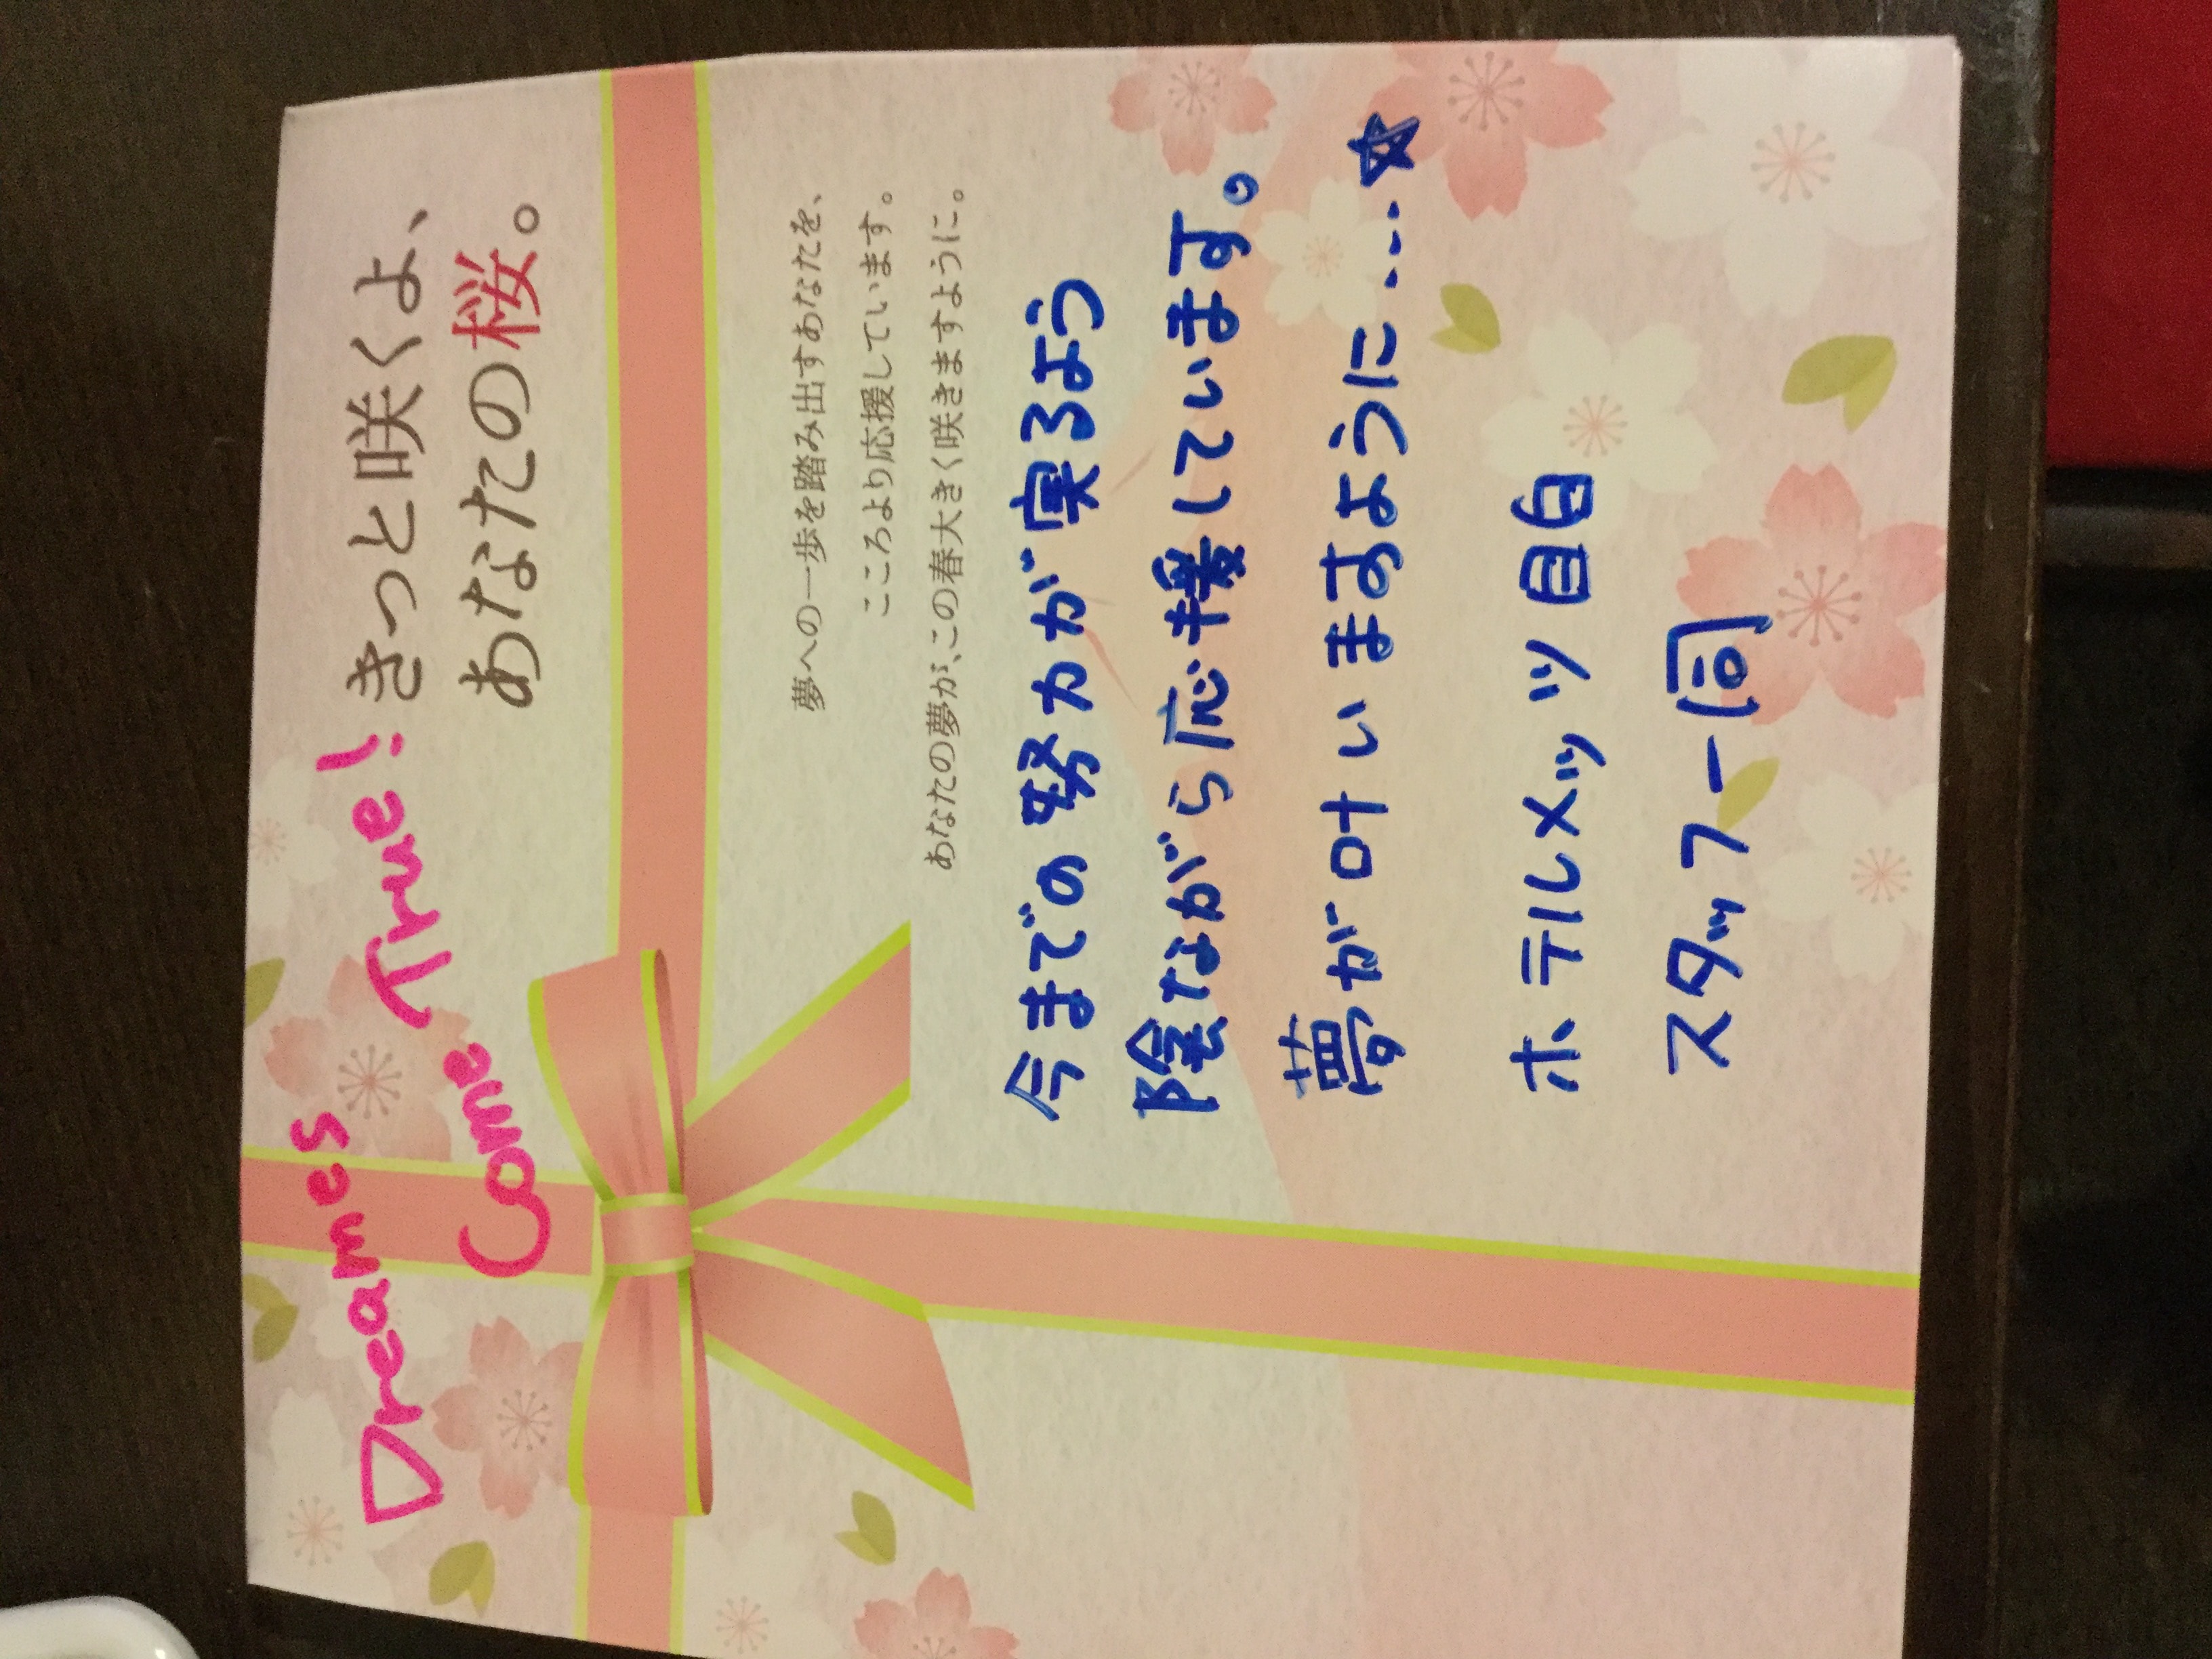 Dreames
Come True!
きっと咲くよ、
あなたの桜。
夢への一歩を踏み出すあなたを、
こころより応援しています。
あなたの夢が、この春大きく咲きますように。
今までの努力が実るよう
陰ながら応援しています。
夢が叶いますように...☆
ホテルメッツ目白
スタッフ一同